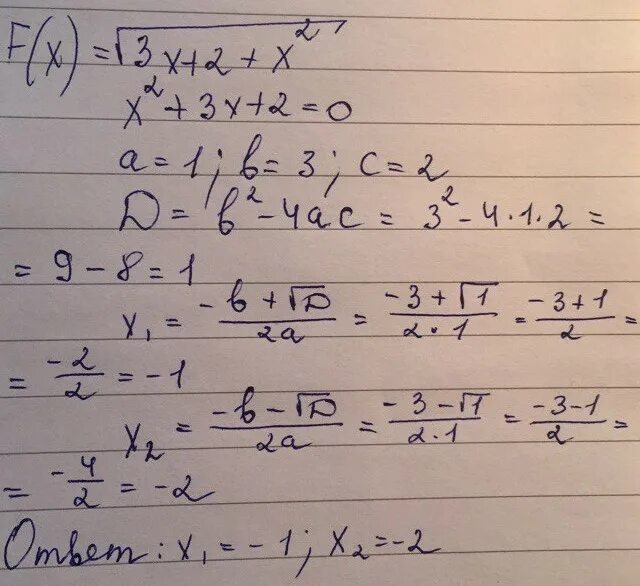 F(x) = √(3x+2+x²)
x²+3x+2=0
a=1; b=3; c=2
D = b²-4ac = 3²-4·1·2 =
= 9-8=1
x₁ = (-b+√D)/(2a) = (-3+√1)/(2·1) = (-3+1)/2 =
= -2/2 = -1
x₂ = (-b-√D)/(2a) = (-3-√1)/(2·1) = (-3-1)/2 =
= -4/2 = -2
Ответ: x₁=-1; x₂=-2